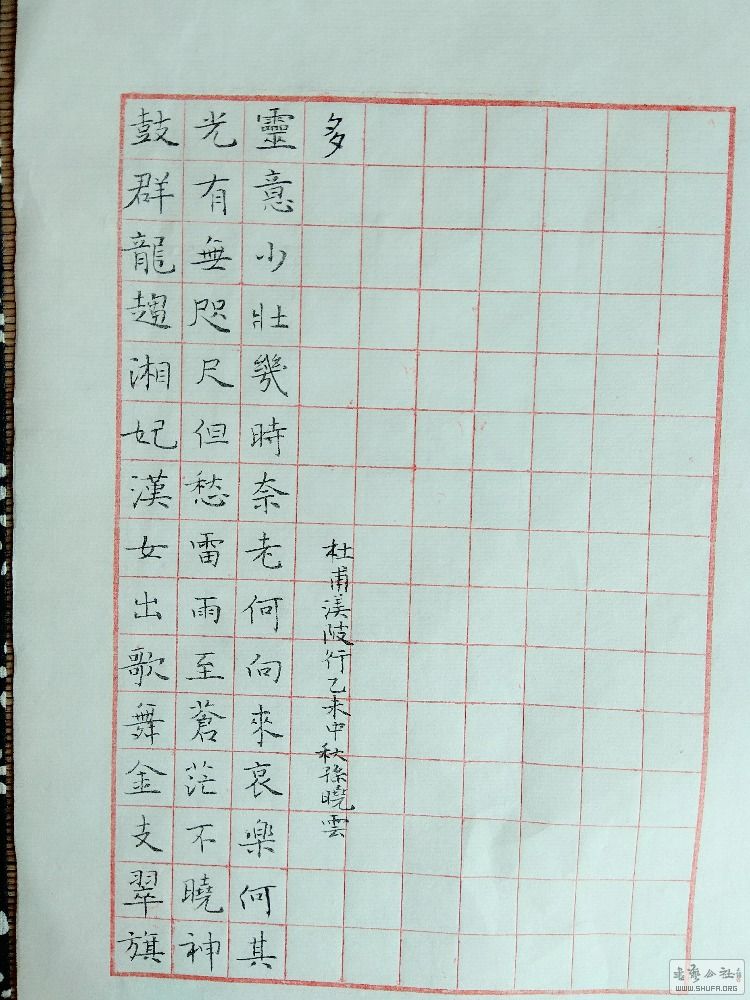 鼓群龍趨湘妃漢女出歌舞金支翠旗
光有無咫尺但愁雷雨至蒼茫不曉神
靈意小壯幾時奈老何向來哀樂何其
多
杜甫渼陂行乙未中秋孫曉雲
WWW.SHUFA.ORG